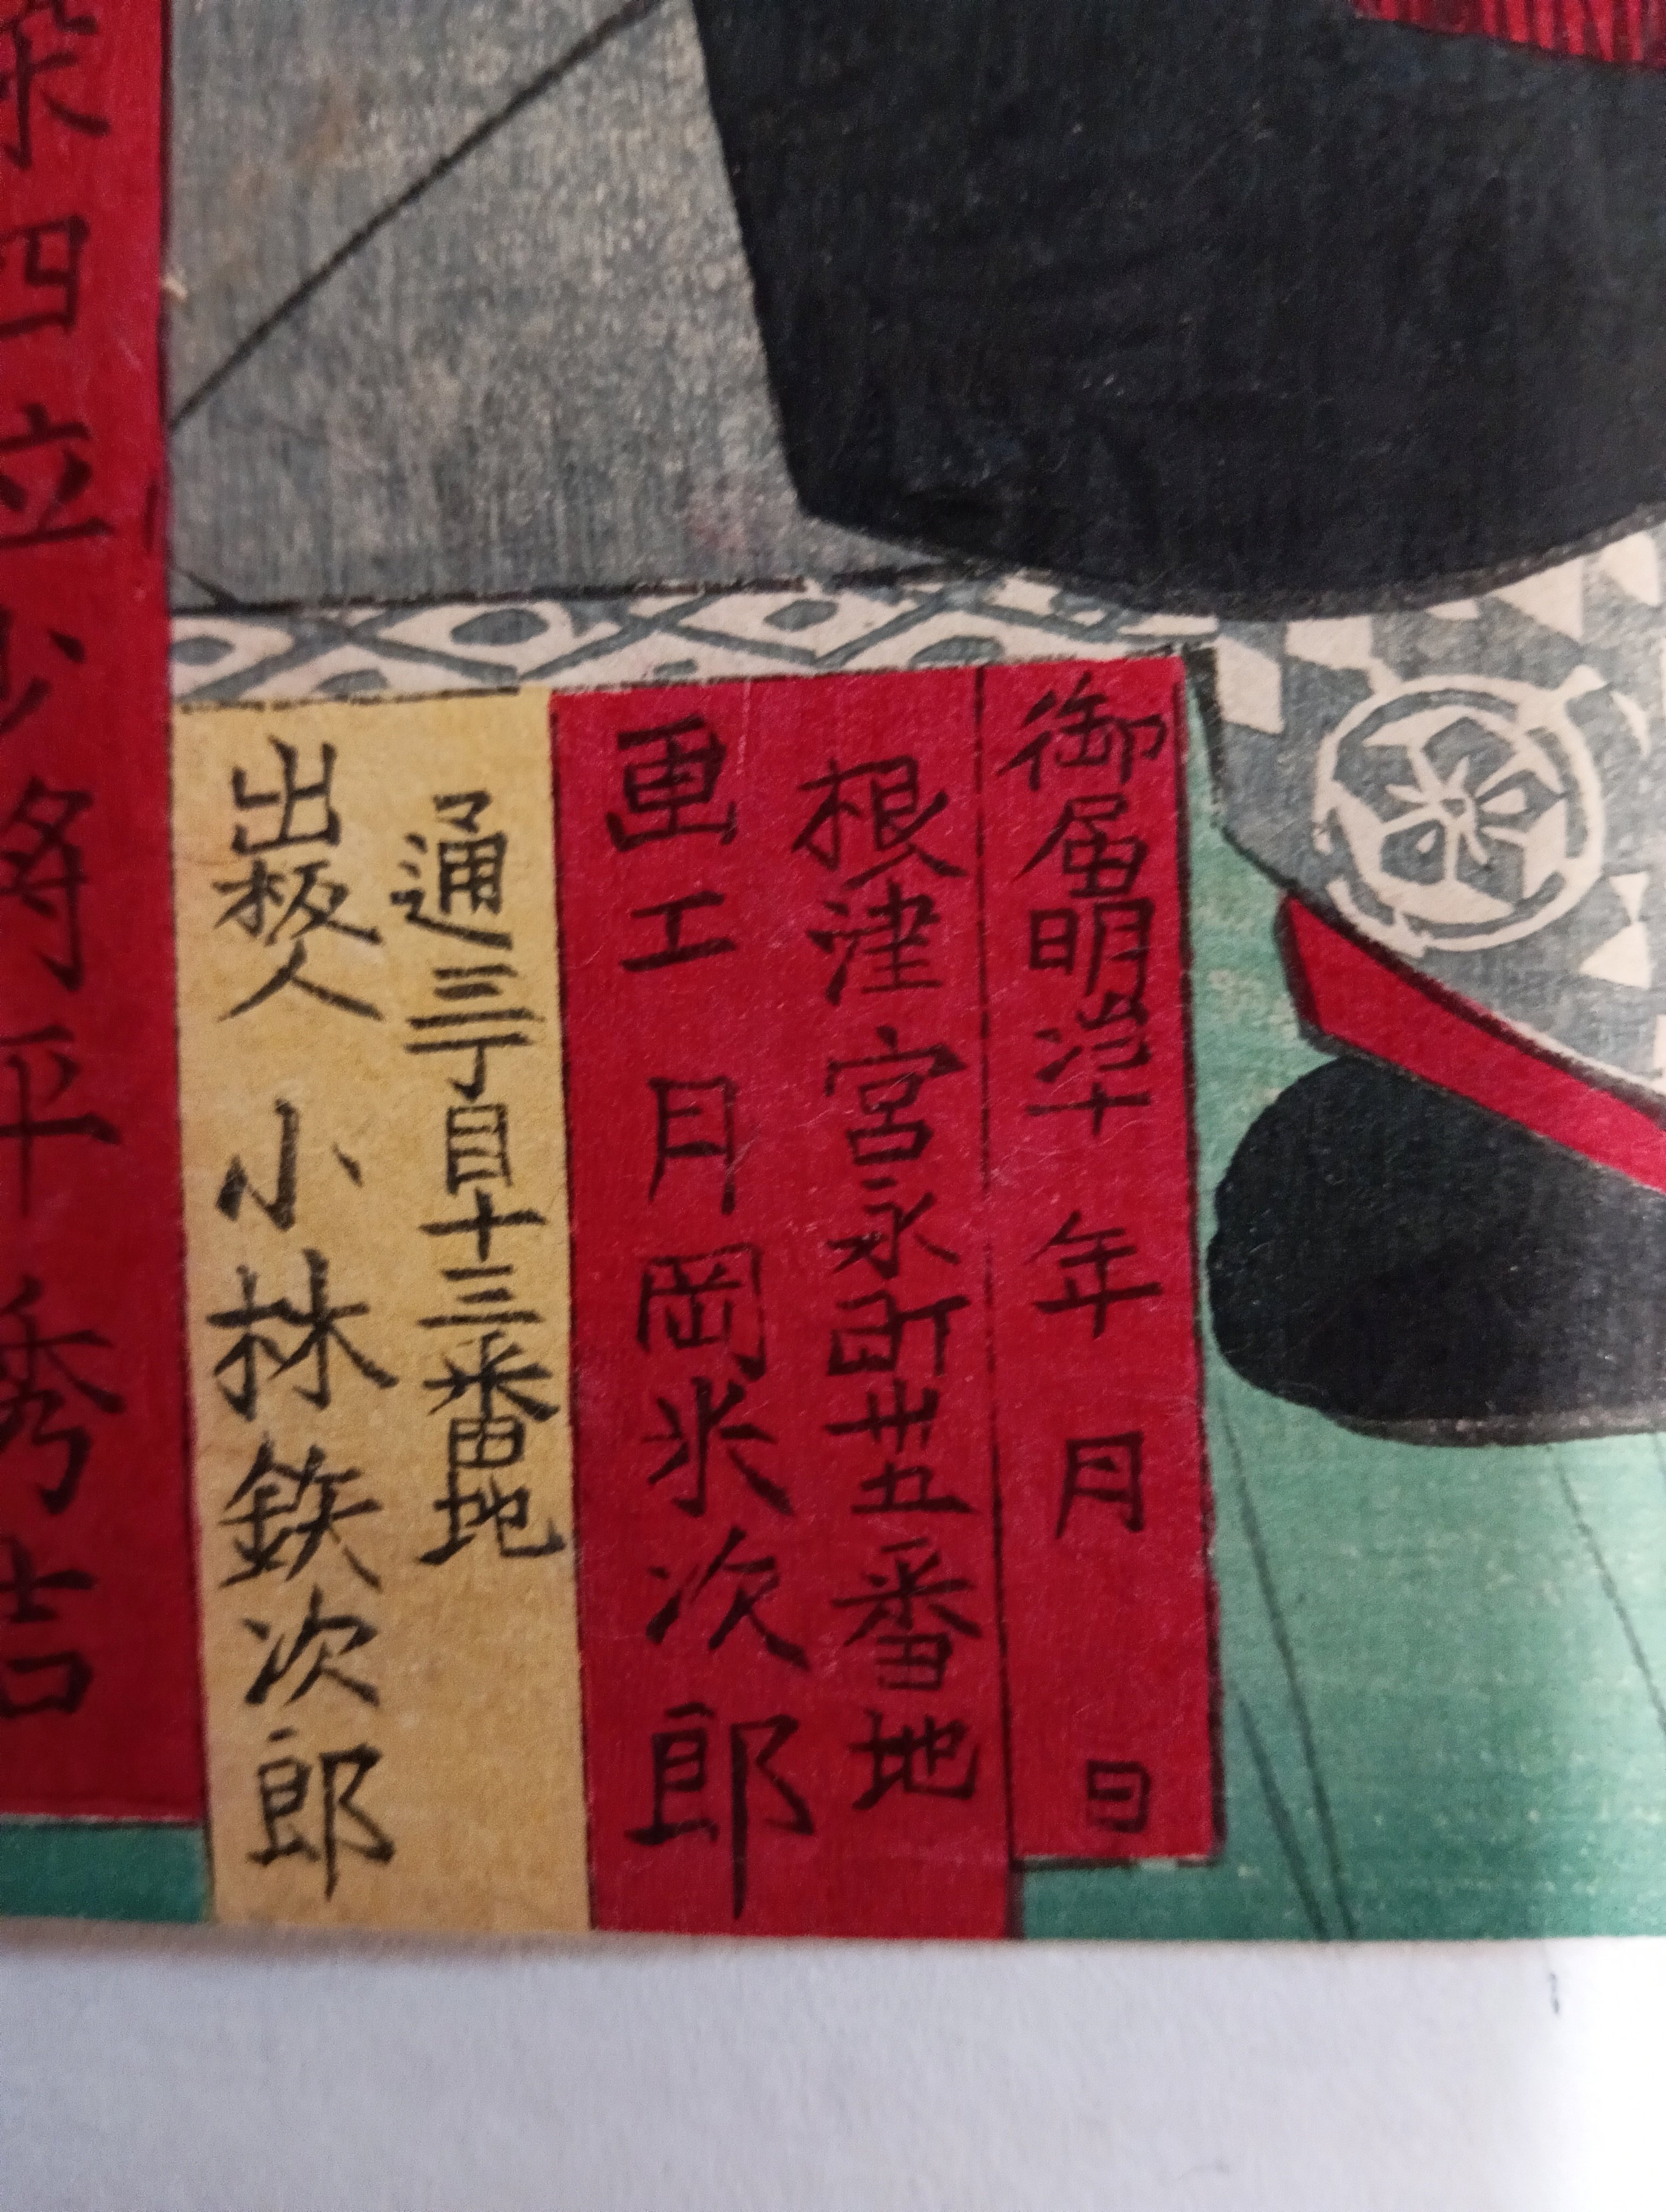 御届明治十年月日
根津宮永町卅五番地
画工月岡米次郎
通三丁目十三番地
出板人小林鉄次郎
四位少将平秀吉